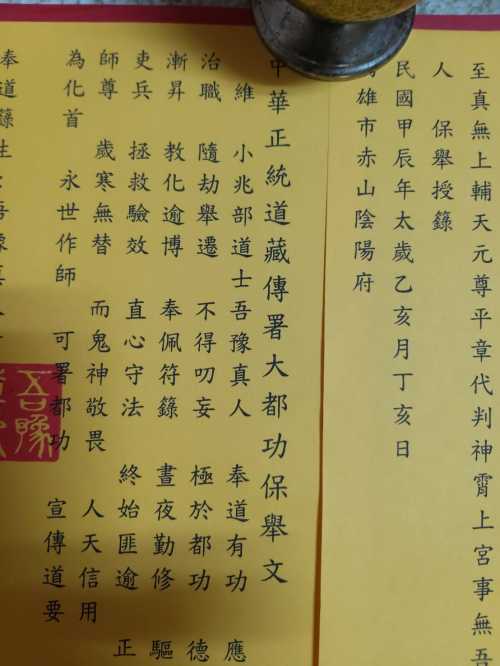 至真無上輔天元尊平章代判神霄上宮事無吾
人 保舉授籙
民國甲辰年太歲乙亥月丁亥日
雄市赤山陰陽府
中華正統道藏傳署大都功保舉文
維 小兆部道士吾豫真人 奉道有功 應
治職 隨劫舉遷 不得叨妄 極於都功 德
漸昇 教化逾博 奉佩符籙 晝夜勤修 驅
吏兵 拯救驗效 直心守法 終始匪逾 正
師尊 歲寒無替 而鬼神敬畏 人天信用
為化首 永世作師 可署都功 宣傳道要
奉道籙生
吾豫